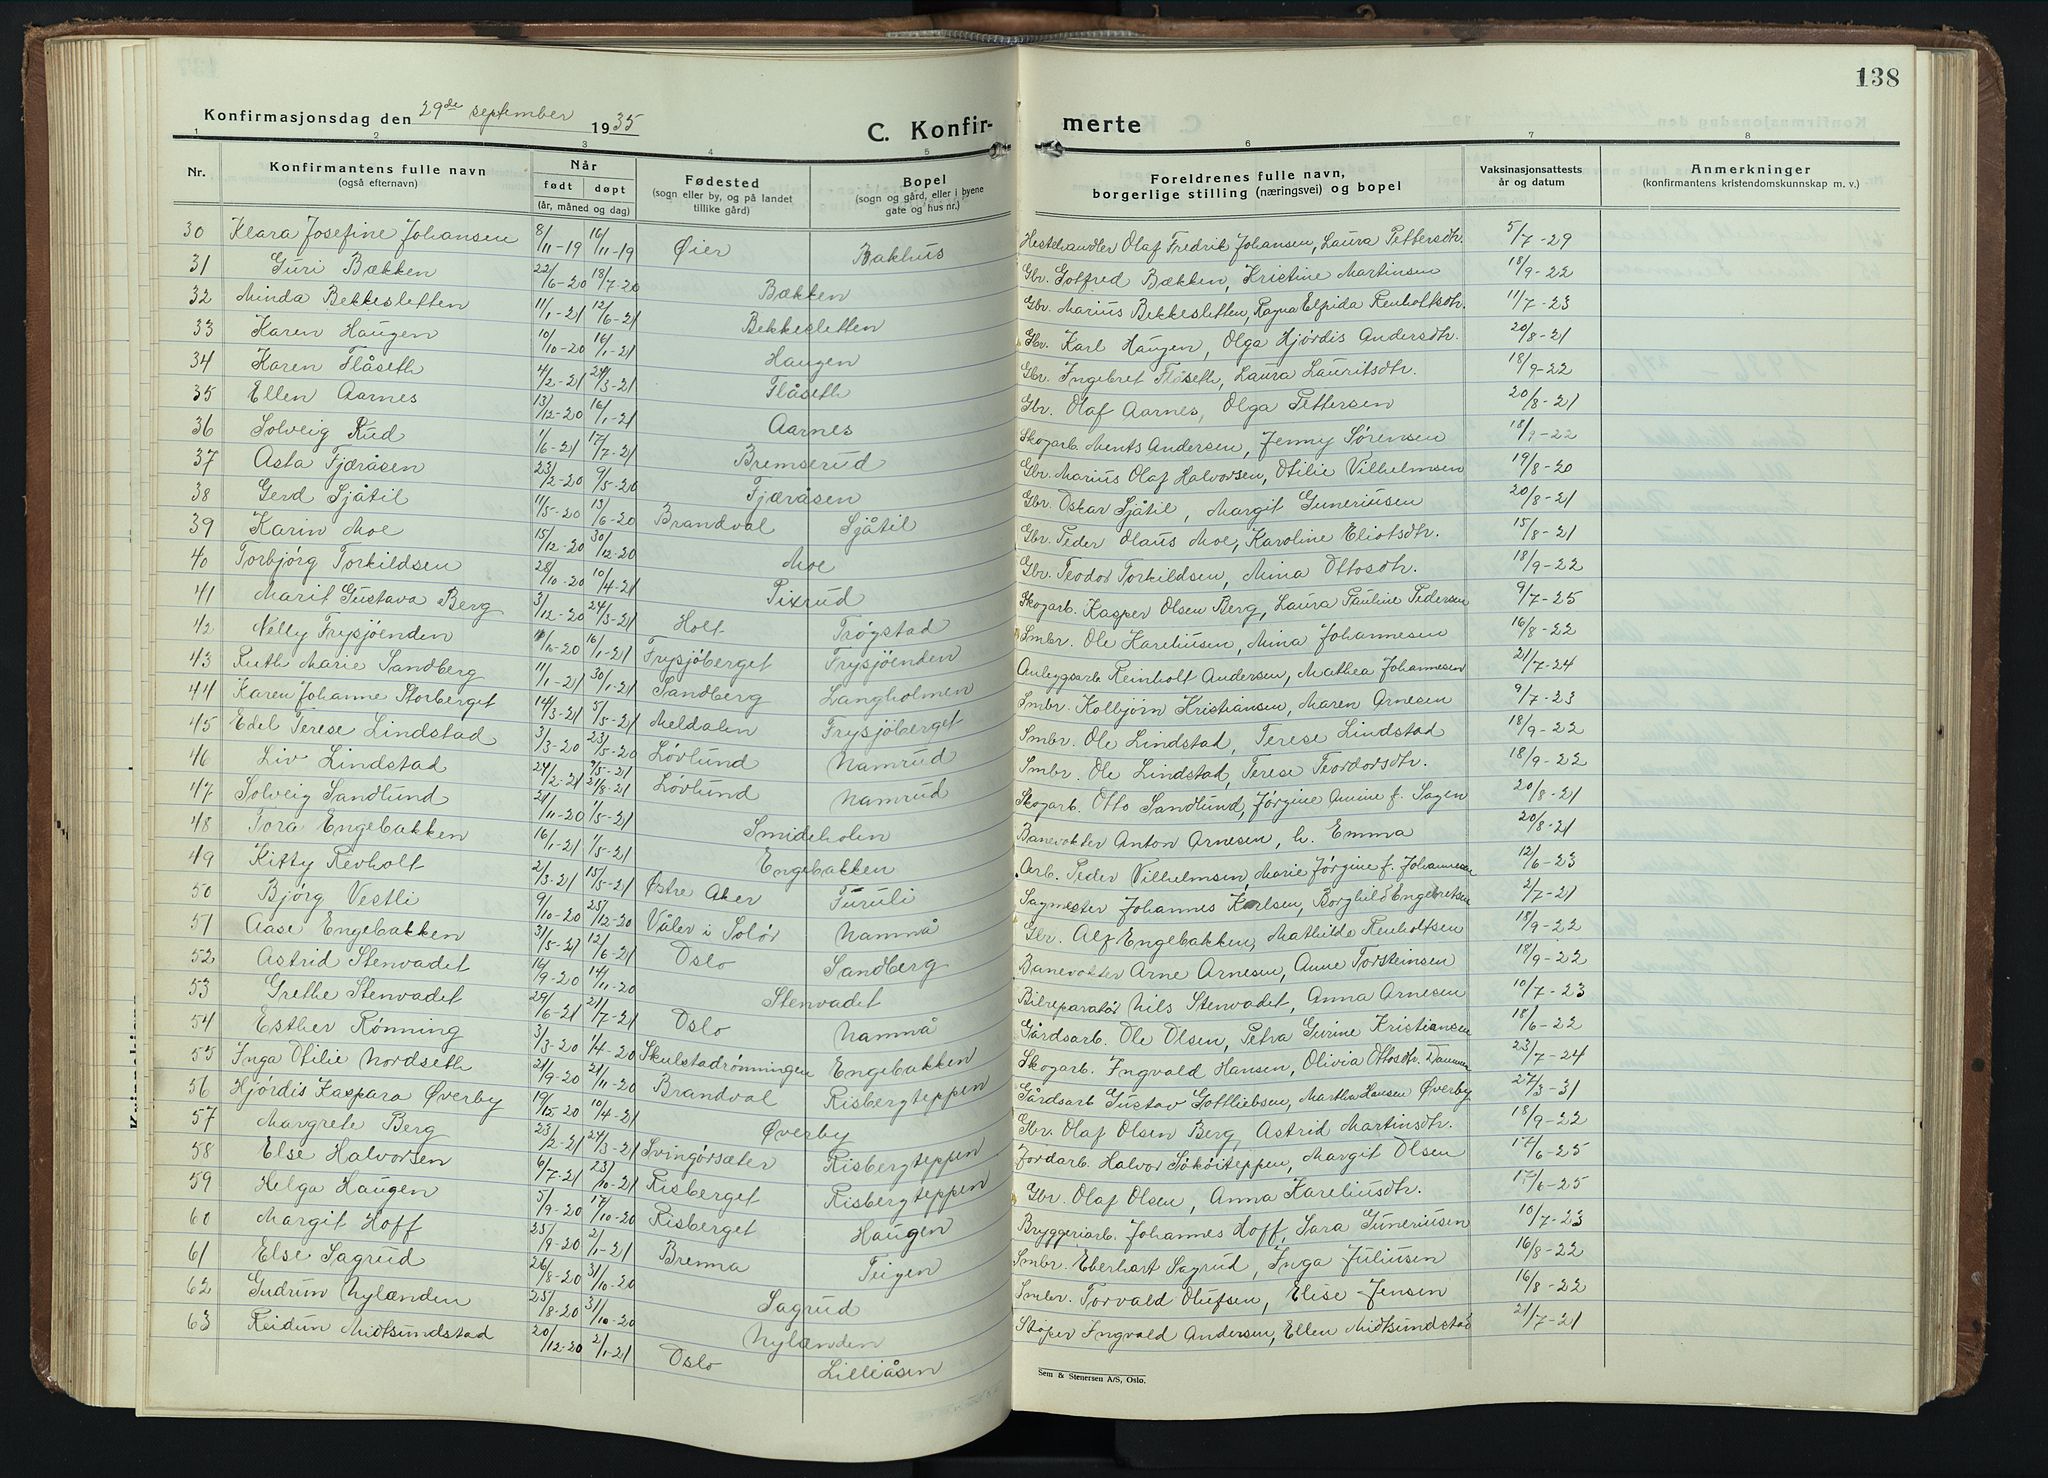 138
Konfirmasjonsdag den 29de september 1935
C. Konfir-
merte
1 2 3 4 5 6 7 8
Nr. Konfirmantens fulle navn (også efternavn) Når født døpt (år, måned og dag) Fødested (sogn eller by, og på landet tillike gård) Bopel (sogn og gård, eller i byene gate og hus nr.) Foreldrenes fulle navn, borgerlige stilling (næringsvei) og bopel Vaksinasjonsattests år og datum Anmerkninger (konfirmantens kristendomskunnskap m. v.)
30 Klara Josefine Johansen 8/11-19 16/11-19 Øier Bakhus Hestehandler Olaf Fredrik Johansen, Laura Pettersdtr. 5/7-29
31 Guri Bækken 22/6-20 18/7-20 Bækken Gbr. Golfred Bækken, Kristine Martinsen 18/9-22
32 Minda Bekkesletten 11/1-21 12/6-21 Bekkesletten Gbr. Marius Bekkesletten, Ragna Elfida Renholtsdtr. 11/7-23
33 Karen Haugen 10/10-20 16/1-21 Haugen Gbr. Karl Haugen, Olga Hjørdis Andersdtr. 20/8-21
34 Karen Flåseth 4/2-21 28/3-21 Flåseth Gbr. Ingebret Flåseth, Laura Lauritsdtr. 18/9-22
35 Ellen Aarnes 13/12-20 16/1-21 Aarnes Gbr. Olaf Aarnes, Olga Pettersen 20/8-21
36 Solveig Rud 1/6-21 17/7-21 Bremserud Skogarb. Ments Andersen, Jenny Sørensen 18/9-22
37 Asta Fjæråsen 23/2-20 9/5-20 Fjæråsen Gbr. Marius Olaf Halvorsen, Otilie Vilhelmsen 19/8-20
38 Gerd Sjåtil 11/5-20 13/6-20 Brandval Sjåtil Gbr. Oskar Sjåtil, Margit Guneriusen 20/8-21
39 Karin Moe 15/12-20 30/12-20 Moe Gbr. Peder Olaus Moe, Karoline Eliotsdtr. 15/8-21
40 Torbjørg Torkildsen 28/10-20 10/4-21 Pixrud Gbr. Teodor Torkildsen, Mina Ottosdtr. 18/9-22
41 Marit Gustava Berg 3/12-20 24/3-21 Holt Trøgstad Skogarb. Kasper Olsen Berg, Laura Pauline Pedersen 9/7-25
42 Nelly Frysjøenden 11/10-20 16/1-21 Frysjøberget Frysjøenden Smbr. Ole Kareliusen, Mina Johannesen 16/8-22
43 Ruth Marie Sandberg 11/1-21 30/1-21 Sandberg Langholmen Anleggsarb Reinholt Andersen, Mathea Johannesen 21/7-24
44 Karen Johanne Storberget 14/3-21 5/5-21 Meldalen Frysjøberget Smbr. Kolbjørn Kristiansen, Maren Arnesen 9/7-23
45 Edel Terese Lindstad 3/3-20 23/5-20 Løvlund Namrud Smbr. Ole Lindstad, Terese Lindstad 18/9-22
46 Liv Lindstad 24/2-21 7/5-21 Løvlund Namrud Smbr. Ole Lindstad, Terese Teordorsdtr. 18/9-22
47 Solveig Sandlund 21/11-20 1/5-21 Smideholen Skogarb. Otto Sandlund, Jørgine Amine f. Sagen 20/8-21
48 Tora Engebakken 16/1-21 1/5-21 Engebakken Banevokter Anton Arnesen, h. Emma 20/8-21
49 Kitty Revholt 2/3-21 15/5-21 Østre Aker Furuli Arb. Peder Vilhelmsen, Marie Jørgine f. Johannesen 12/6-23
50 Bjørg Vestli 9/10-20 25/12-20 Våler i Solør Nammå Sagmester Johannes Karlsen, Borghild Engebretsen 2/7-21
51 Aase Engebakken 31/5-21 12/6-21 Oslo Sandberg Gbr. Alf Engebakken, Mathilde Renholtsen 18/9-22
52 Astrid Stenvadet 16/9-20 14/11-20 Stenvadet Banevokter Arne Arnesen, Anne Torsteinsen 18/9-22
53 Grethe Stenvadet 29/6-21 21/7-21 Oslo Nammå Bilreparatør Nils Stenvadet, Anna Arnesen 10/7-23
54 Esther Rønning 3/3-20 1/4-20 Skulstadrønningen Engebakken Gårdsarb. Ole Olsen, Petra Gurine Kristiansen 18/6-22
55 Inga Otilie Nordseth 21/9-20 21/11-20 Brandval Risbergteppen Skogarb. Ingvald Hansen, Olivia Ottosdtr. Dammen 23/7-24
56 Hjørdis Kaspara Øverby 19/12-20 10/4-21 Øverby Gårdsarb Gustav Gottliebsen, Martha Hansen Øverby 27/3-31
57 Margrete Berg 23/2-21 24/3-21 Svingørsæter Risbergteppen Gbr. Olaf Olsen Berg, Astrid Martinsdtr. 18/9-22
58 Else Halvorsen 6/7-21 23/10-21 Risberget Risbergteppen Jordarb. Halvor Søkøiteppen, Margit Olsen 17/6-25
59 Helga Haugen 5/9-20 17/10-20 Risberget Haugen Gbr. Olaf Olsen, Anna Kareliusdtr. 17/6-25
60 Margit Hoff 25/9-20 2/1-21 Brenna Teigen Bryggeriarb. Johannes Hoff, Sara Guneriusen 10/7-23
61 Else Sagrud 26/8-20 31/10-20 Sagrud Smbr. Eberhart Sagrud, Inga Juliusen 16/8-22
62 Gudrun Nylænden 25/8-20 31/10-20 Nylænden Smbr. Torvald Olufsen, Elise Jensen 16/8-22
63 Reidun Midtsundstad 20/12-20 2/1-21 Oslo Lilleåsen Støper Ingvald Andersen, Ellen Midtsundstad 21/7-21
Sem & Stenersen A/S, Oslo.